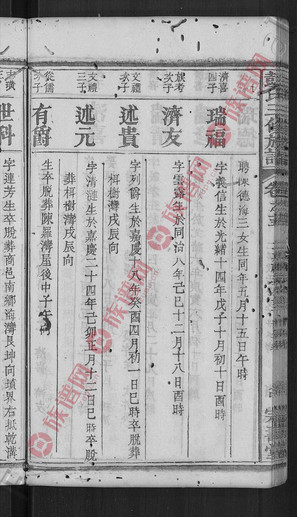 聘陳德海三女生同年五月十五日午時
濟喜四子
瑞福
字義信生於光緒十四年戊子十月初十日酉時
族考次子
濟友
字雲露生於同治八年己巳十二月十八日酉時
文禮次子
述貴
字列爵生於嘉慶十八年癸酉四月初一日巳時卒脫葬
栂樹灣戌辰向
文禮三子
述元
字清漣生於嘉慶二十四年己卯正月十二日巳時卒脫
葬栂樹灣戌辰向
從儒次子
有爵
生卒脫葬陳羅灣屋後中子午向
世科
字連芳生卒脫葬商邑南鄉前灣艮坤向墳界右抵乾溝
族譜网